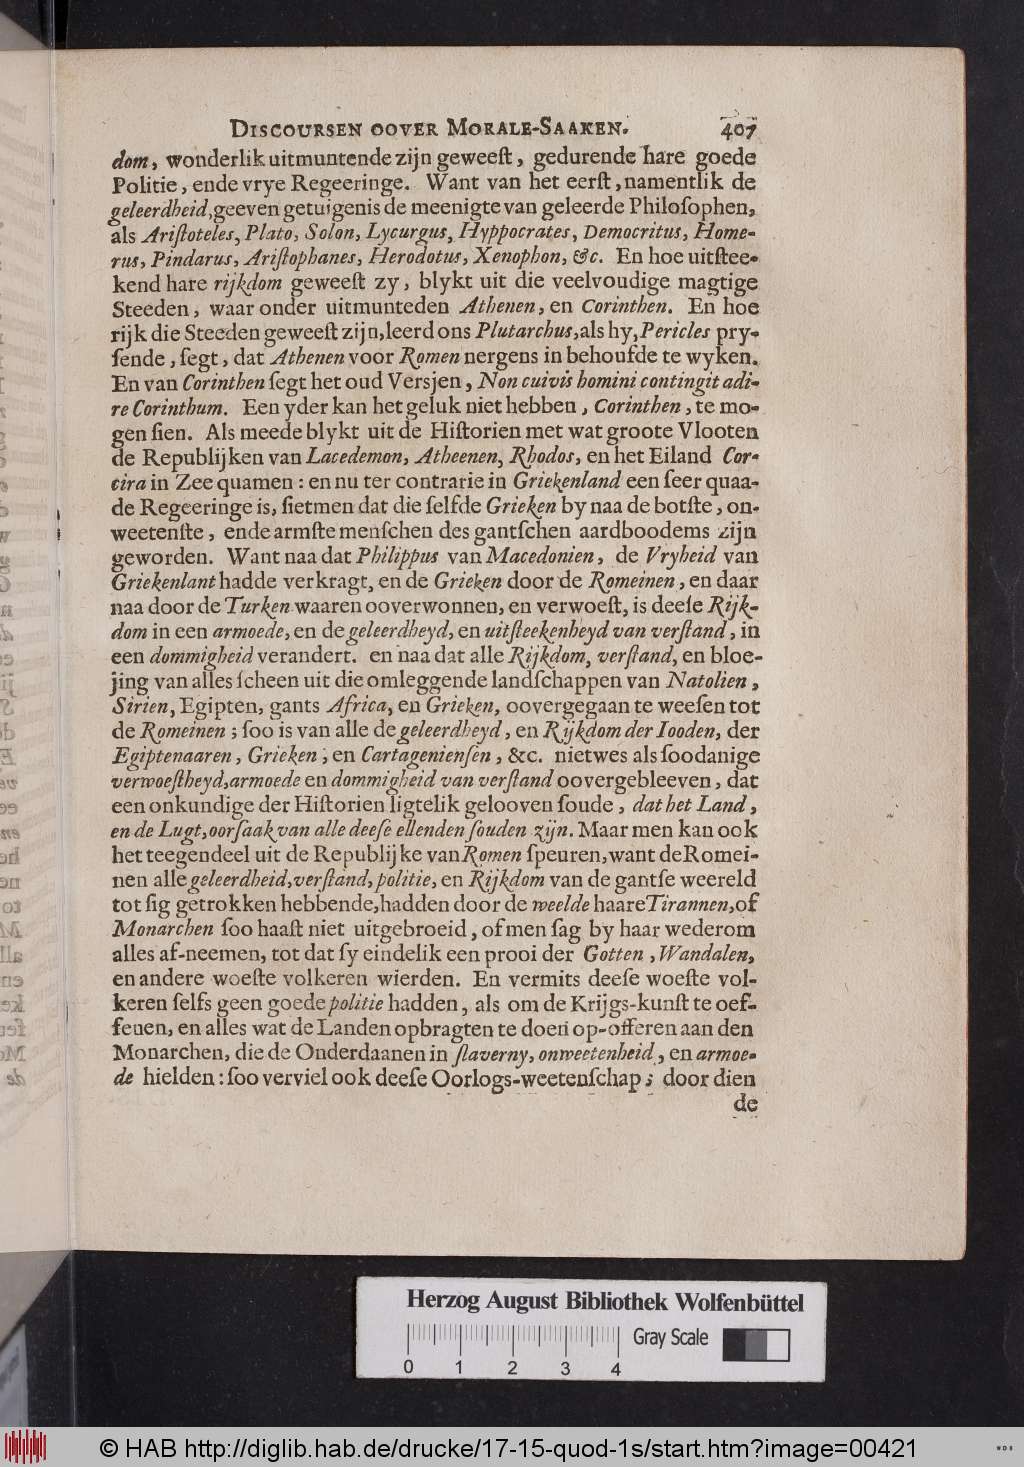 DISCOURSEN OOVER MORALE-SAAKEN. 407
dom, wonderlik uitmuntende zijn geweeſt, gedurende hare goede
Politie, ende vrye Regeeringe. Want van het eerſt, namentlik de
geleerdheid, geeven getuigenis de meenigte van geleerde Philoſophen,
als Ariſtoteles, Plato, Solon, Lycurgus, Hyppocrates, Democritus, Home-
rus, Pindarus, Ariſtophanes, Herodotus, Xenophon, &c. En hoe uitſtee-
kend hare rijkdom geweeſt zy, blykt uit die veelvoudige magtige
Steeden, waar onder uitmunteden Athenen, en Corinthen. En hoe
rijk die Steeden geweeſt zijn, leerd ons Plutarchus, als hy, Pericles pry-
ſende, ſegt, dat Athenen voor Romen nergens in behoufde te wyken.
En van Corinthen ſegt het oud Versjen, Non cuivis homini contingit adi-
re Corinthum. Een yder kan het geluk niet hebben, Corinthen, te mo-
gen ſien. Als meede blykt uit de Hiſtorien met wat groote Vlooten
de Republijken van Lacedemon, Atheenen, Rhodos, en het Eiland Cor-
cira in Zee quamen: en nu ter contrarie in Griekenland een ſeer quaa-
de Regeeringe is, ſietmen dat die ſelfde Grieken by naa de botſte, on-
weetenſte, ende armſte menſchen des gantſchen aardboodems zijn
geworden. Want naa dat Philippus van Macedonien, de Vryheid van
Griekenlant hadde verkragt, en de Grieken door de Romeinen, en daar
naa door de Turken waaren ooverwonnen, en verwoeſt, is deeſe Rijk-
dom in een armoede, en de geleerdheyd, en uitſteekenheyd van verſtand, in
een dommigheid verandert. en naa dat alle Rijkdom, verſtand, en bloe-
jing van alles ſcheen uit die omleggende landſchappen van Natolien,
Sirien, Egipten, gants Africa, en Grieken, oovergegaan te weeſen tot
de Romeinen; ſoo is van alle de geleerdheyd, en Rijkdom der Iooden, der
Egiptenaaren, Grieken; en Cartagenienſen, &c. niet wes als ſoodanige
verwoeſtheyd, armoede en dommigheid van verſtand oovergebleeven, dat
een onkundige der Hiſtorien ligtelik gelooven ſoude, dat het Land,
en de Lugt, oorſaak van alle deeſe ellenden ſouden zijn. Maar men kan ook
het teegendeel uit de Republijke van Romen ſpeuren, want de Romei-
nen alle geleerdheid, verſtand, politie, en Rijkdom van de gantſe weereld
tot ſig getrokken hebbende, hadden door de weelde haare Tirannen, of
Monarchen ſoo haaſt niet uitgebroeid, of men ſag by haar wederom
alles af-neemen, tot dat ſy eindelik een prooi der Gotten, Wandalen,
en andere woeſte volkeren wierden. En vermits deeſe woeſte vol-
keren ſelfs geen goede politie hadden, als om de Krijgs-kunſt te oef-
fenen, en alles wat de Landen opbragten te doen op-offeren aan den
Monarchen, die de Onderdaanen in ſlaverny, onweetenheid, en armoe-
de hielden: ſoo verviel ook deeſe Oorlogs-weetenſchap; door dien
de
Herzog August Bibliothek Wolfenbüttel
Gray Scale
0 1 2 3 4
© HAB http://diglib.hab.de/drucke/17-15-quod-1s/start.htm?image=00421